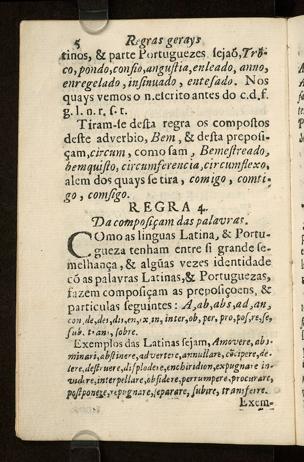 5 Regras gerays
tinos, & parte Portuguezes sejaõ, Tro-
co, pondo, consio, angustia, enleado, anno,
enregelado, insinuado, entesado. Nos
quays vemos o n.escrito antes do c.d.f.
g. l. n. r. s. t.
Tiram-se desta regra os compostos
deste adverbio, Bem, & desta preposi-
çam, circum, como sam, Bemestreado,
bemquisto, circumferencia, circumflexo,
alem dos quays se tira, comigo, comti-
go, comsigo.
REGRA 4.
Da composiçam das palavras.
COmo as linguas Latina, & Portu-
gueza tenham entre si grande se-
melhança, & algũas vezes identidade
cõ as palavras Latinas, & Portuguezas,
fazem composiçam as preposiçoens, &
particulas seguintes: A, ab, abs, ad, an,
con, de, des, dis, en, ex, in, inter, ob, per, pro, pos, re, se,
sub. trans, sobre.
Exemplos das Latinas sejam, Amovere, abo-
minari, abstinere, advertere, annullare, cõcipere, de-
lere, destruere, displodere, enchiridion, expugnare in-
vadere, interpellare, obsidere, perrumpere, procurare,
postponere, repugnare, separare, subire, transferre.
Exem-